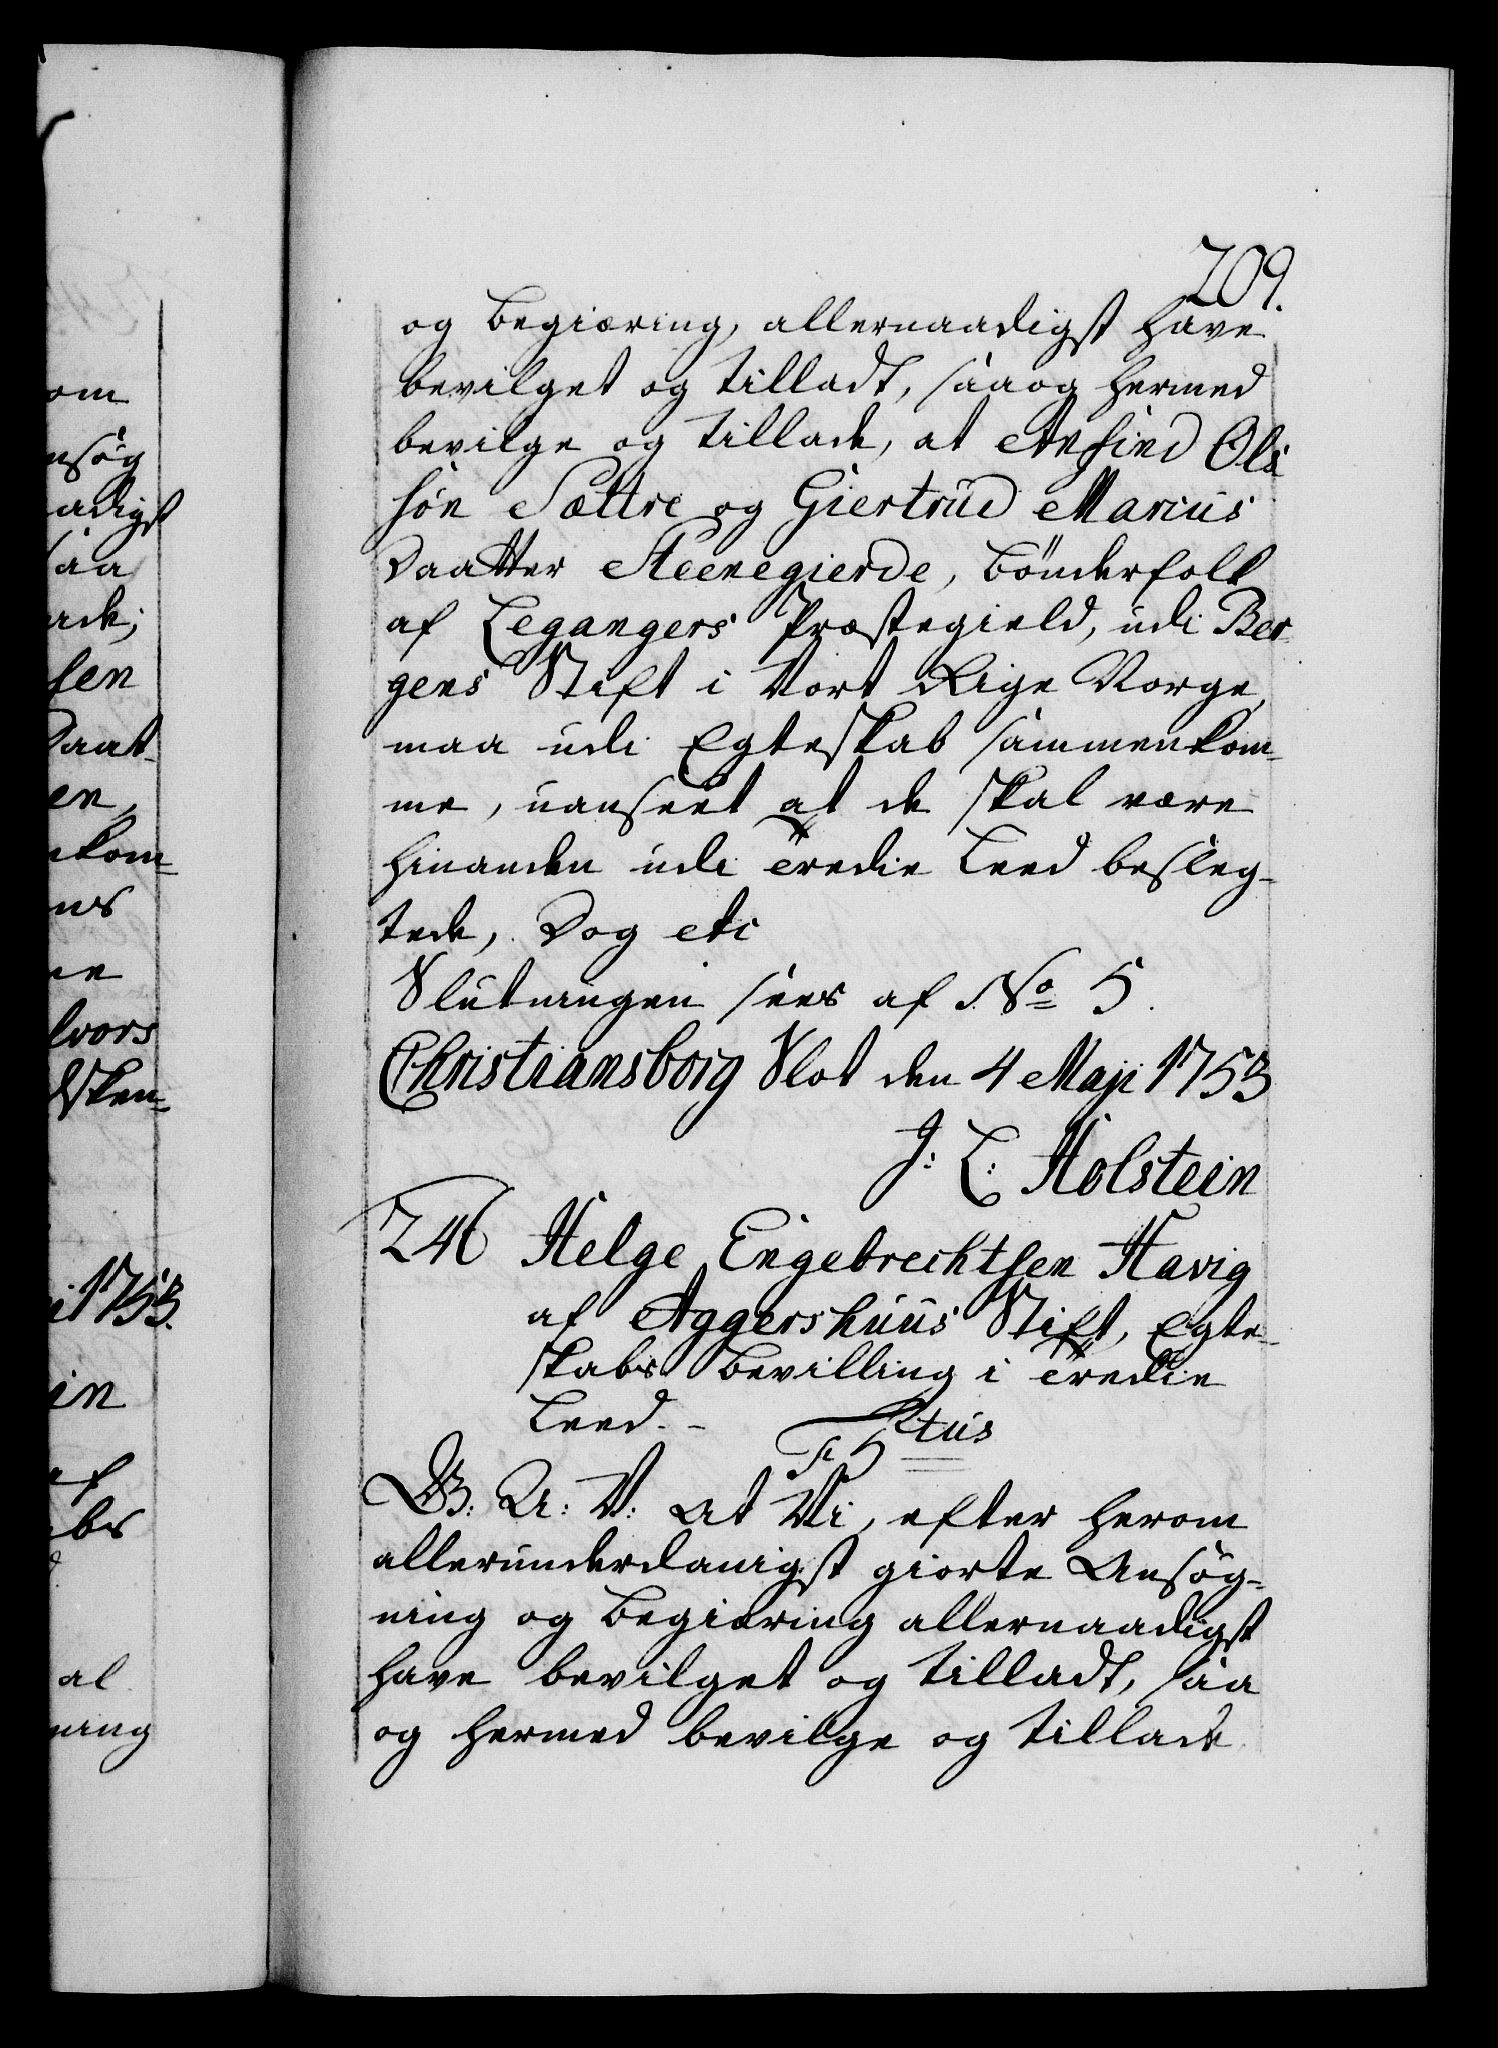 om
nsøg
adigst
saa
ade;
sen
Daat-
en,
nkom-
lvors
i 1753.
in
af
abs
al
ning
209.
og begiæring, allernaadigst have
bevilget og tilladt, saa og hermed
bevilge og tillade, at Anfind Ols
søn Sættre og Giertrud Marius
Daatter Steenegierde, bønderfolk
af Legangers Præstegield, udi Ber-
gens Stift i Vort Rige Norge,
maa udi Egteskab sammenkom-
me, uanseet at de skal være
hinanden udi tredie Leed besleg-
tede, Dog etc
Slutningen sees af No 5.
Christiansborg Slot den 4 Maji 1753
J: L: Holstein
246 Helge Engebrechtsen Havig
af Aggershuus Stift, Egte-
skabs bevilling i tredie
Leed. -
F5tus
G. A: V: At Vi, efter herom
allerunderdanigst giorte Ansøg-
ning og begiæring allernaadigst
have bevilget og tilladt, saa
og hermed bevilge og tillade